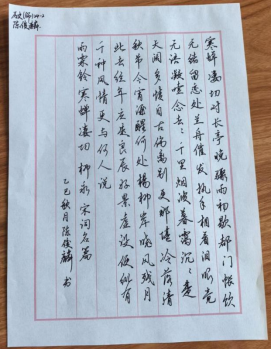 寒蝉凄切对长亭晚骤雨初歇都门帐饮
无绪留恋处兰舟催发执手相看泪眼竟
无语凝噎念去々千里烟波暮霭沉々楚
天阔多情自古伤离别更那堪冷落清
秋节今宵酒醒何处杨柳岸晓风残月
此去经年应是良辰好景虚设便纵有
千种风情更与何人说
雨霖铃 寒蝉凄切 柳永 宋词名篇
乙巳秋月陈俊麟书
陈俊麟